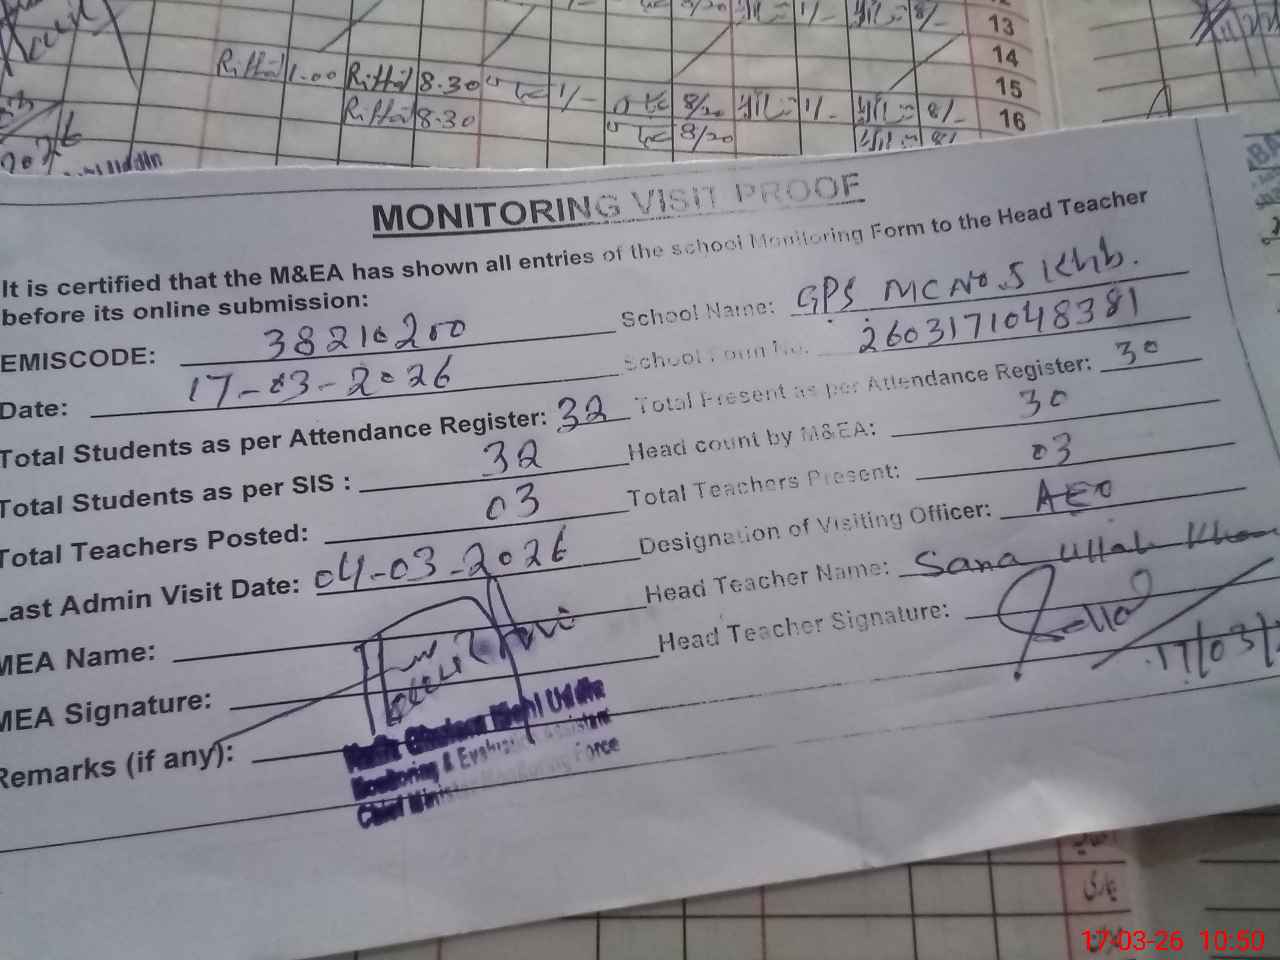 13
14
Riffat 1.00 Riffat 8.30 15
Riffat 8.30 8/20 1/- 8/- 16
8/20
MONITORING VISIT PROOF
It is certified that the M&EA has shown all entries of the school Monitoring Form to the Head Teacher
before its online submission:
EMISCODE: 38210200 School Name: GPS MC No. 5 Khb.
Date: 17-03-2026 School Form No. 2603171048381
Total Students as per Attendance Register: 32 Total Present as per Attendance Register: 30
Total Students as per SIS : 32 Head count by M&EA: 30
Total Teachers Posted: 03 Total Teachers Present: 03
Last Admin Visit Date: 04-03-2026 Designation of Visiting Officer: AEO
MEA Name: Head Teacher Name: Sana Ullah Khan
MEA Signature: Head Teacher Signature:
17/03/
Remarks (if any):
Uddin
Monitoring & Evaluation Assistant
Chief Minister Monitoring Force
17-03-26 10:50